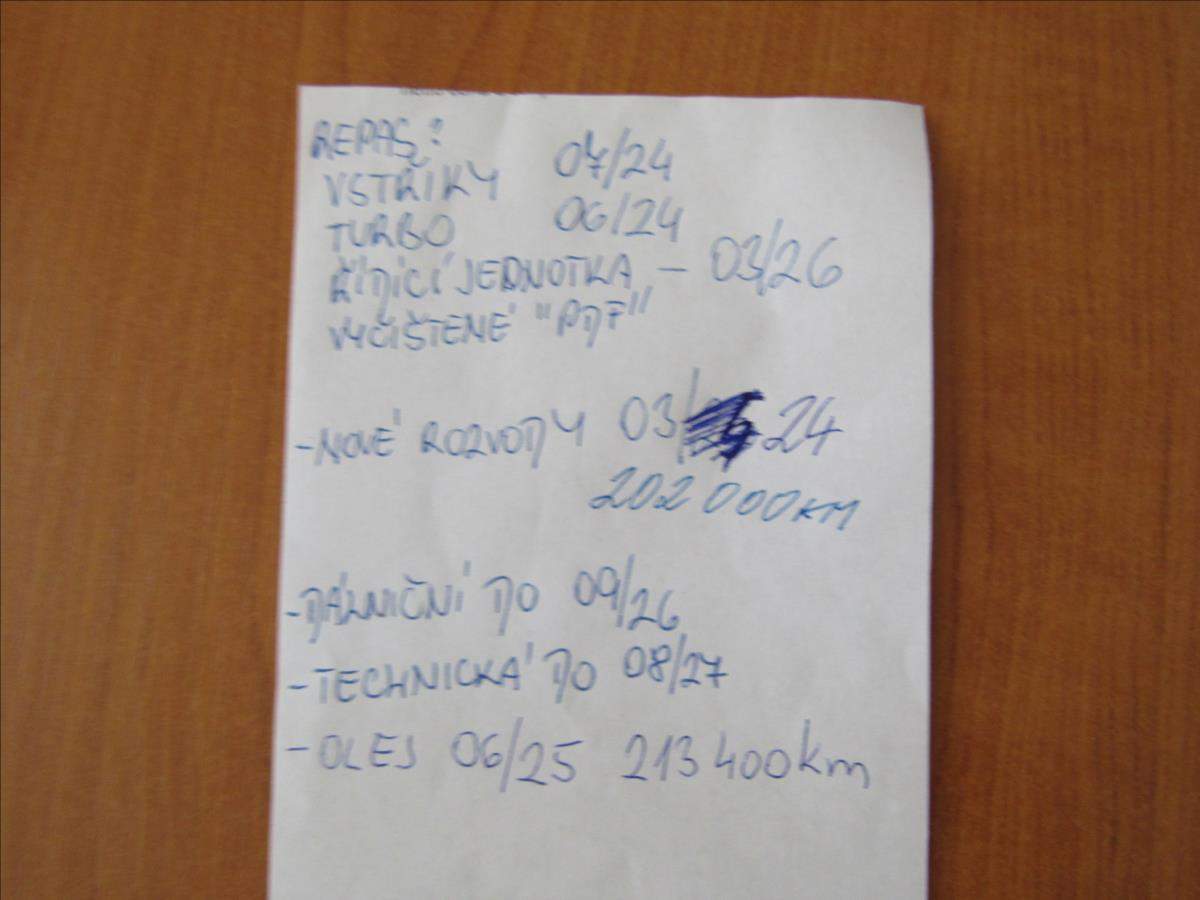 REPAS:
VSTŘIKY 07/24
TURBO 06/24
ŘÍDÍCÍ JEDNOTKA – 03/26
VYČIŠTENÉ "PDF"
-NOVÉ ROZVODY 03/ 24
202 000KM
-DÁLNIČNÍ DO 09/26
-TECHNICKÁ DO 08/27
-OLEJ 06/25 213 400km